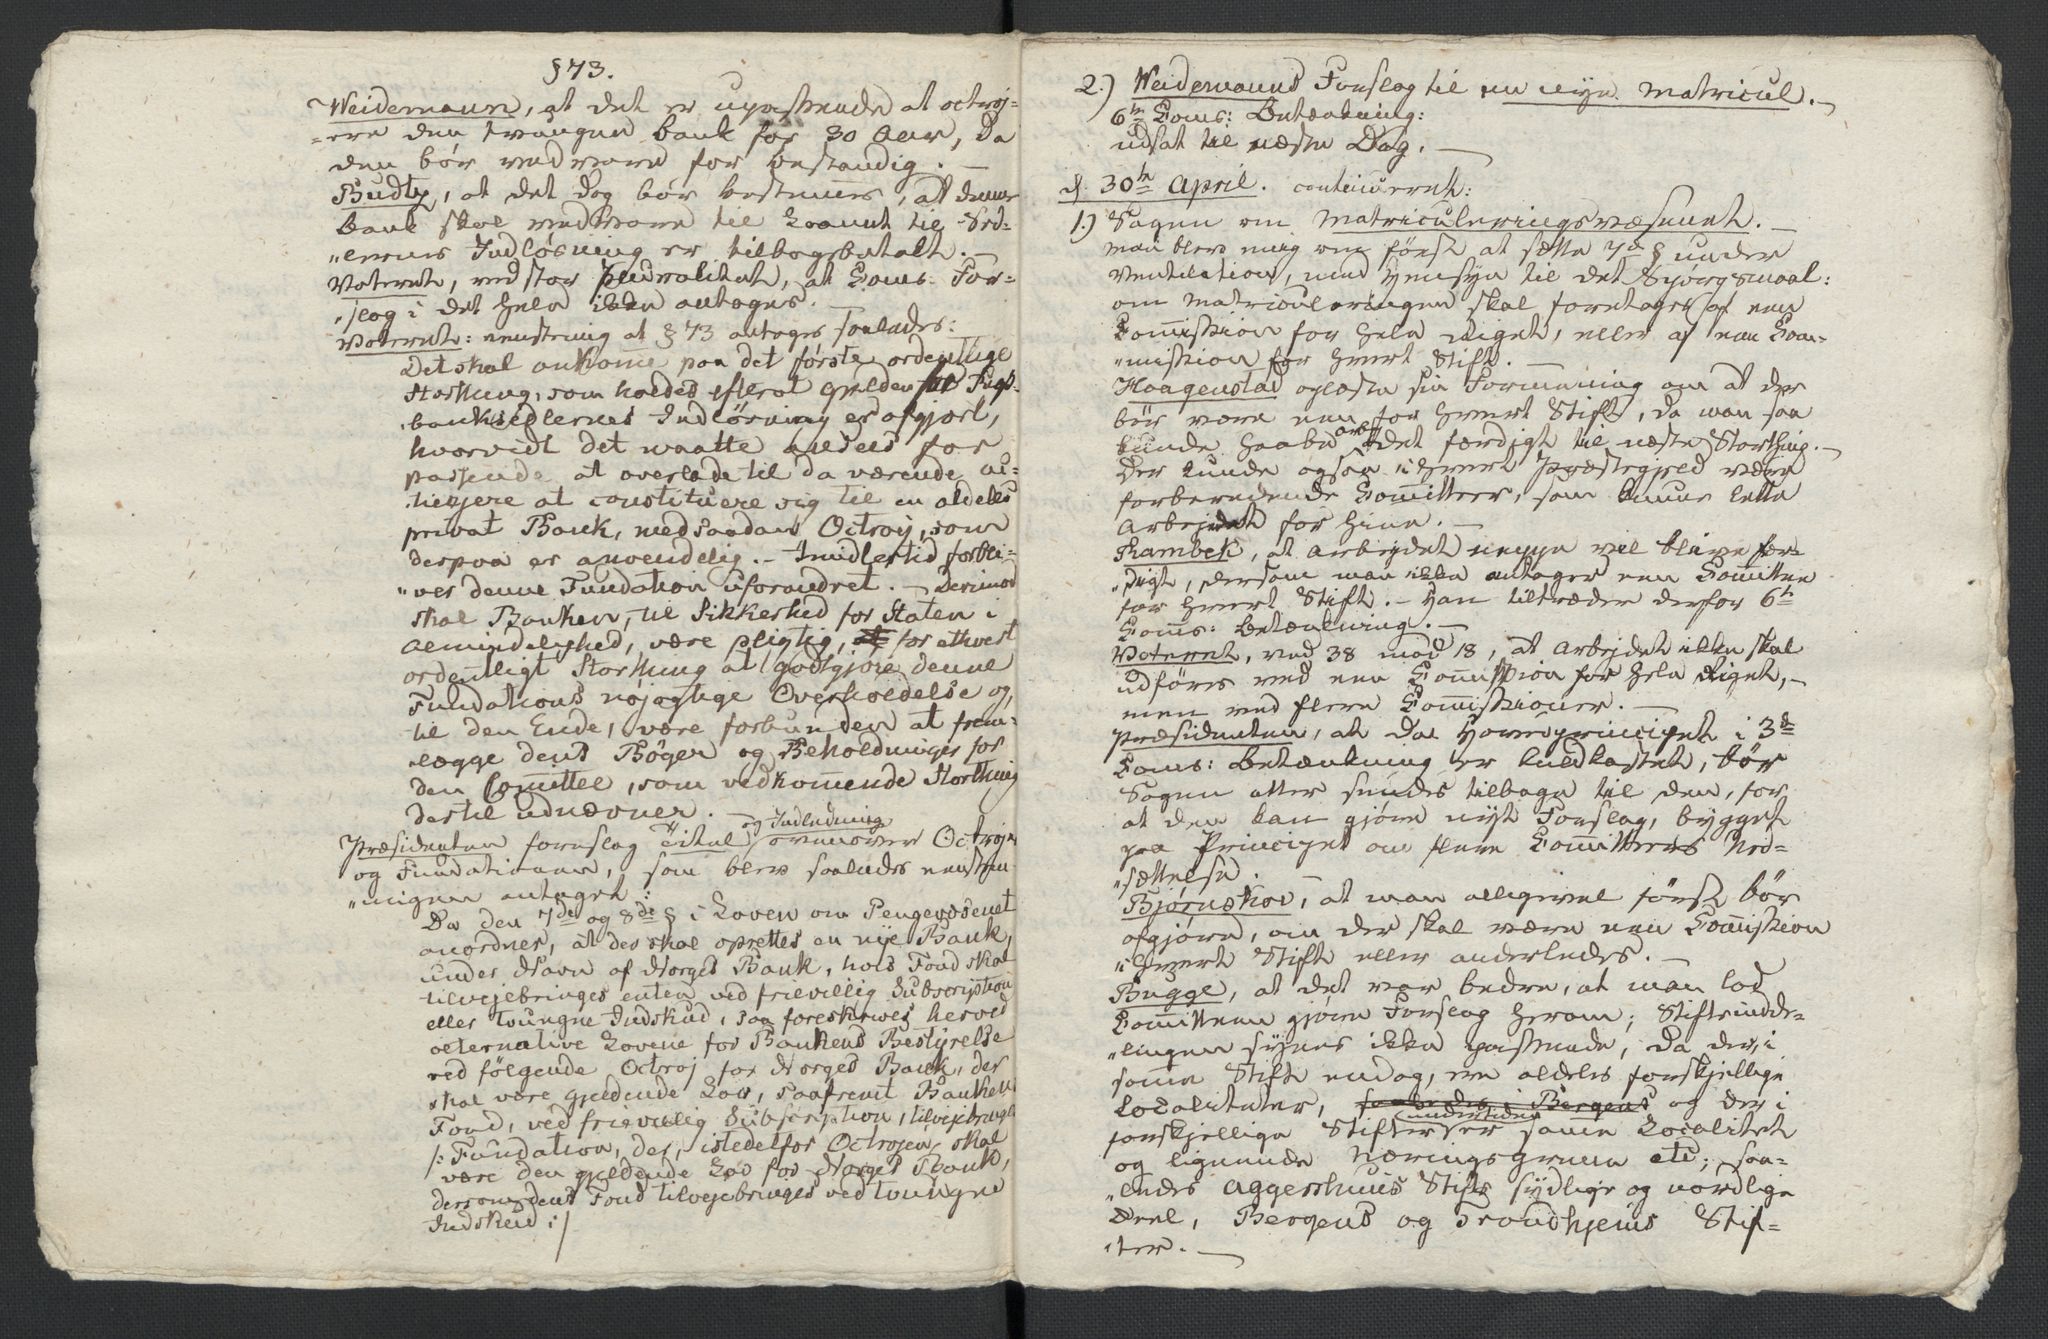 § 73.
Weidemann, at det er upassende at octroj-
-ere den tvungne Bank for 30 Aar, da
den bør vedvare for bestandig. —
Budtz, at det dog bør bestemmes, at denne
Bank skal vedvare til Laanet til Sed-
„lernes Indløsning er tilbagebetalt. —
Voteret, ved stor Pluralitet, at Coms. For-
„slag i det hele ikke antages. —
Voteret: eenstemig at § 73 antages saaledes:
Det skal ankome paa det første ordentlige
Storthing, som holdes efterat Gjelden til Rigs-
bancksedlernes Indløsning er afgjort,
hvorvidt det maatte ansees for
passende at overlade til da værende Ac-
-tiejere at constituere sig til en aldeles
privat Bank, med saadan Octroj, som
derpaa er anvendelig. — Imidlertid forbli-
„ver denne Fundation uforandret. — Derimod
skal Banken, til Sikkerhed for Staten i
Almindelighed, være pligtig, at for ethvert
ordentligt Storthing at godtgjøre denne
Fundations nøjagtige Overholdelse og,
til den Ende, være forbunden at frem-
-lægge dens Bøger og Beholdninger for
den Comittee, som vedkommende Storthing
dertil udnævner. —
Præsidenten foreslog Titel og Indledning ovenover Octrojen
og Fundationen, som blev saaledes eenstem-
„migen antaget:
Da den 7de og 8de § i Loven om Pengevæsenet
anordner, at der skal oprettes en nye Bank,
under Navn af Norges Bank, hvis Fond skal
tilvejebringes enten ved frievillig Subscription
eller tvungne Indskud, saa foreskrives herved
alternative Lovene for Bankens Bestyrelse
ved følgende Octroj for Norges Bank, der
skal være gjeldende Lov, saafremt Bankens
Fond, ved frievillig Subscription, tilvejebringes
/: Fundation, der, istedetfor Octrojen, skal
være den gjeldende Lov for Norges Bank,
dersom dens Fond tilvejebringes ved tvungne
Indskud :/
2.) Weidemanns Forslag til en nye Matricul. —
6te Coms: Betænkning:
udsat til næste Dag. —
d. 30te April. continueret:
1.) Sagen om Matriculeringsvæsenet. —
man blev enig om først at sætte 7de § under
Ventilation, med Hensyn til det Spørgsmaal:
om Matriculeringen skal foretages af een
Commission for hele Riget, eller af een Com-
„mission for hvert Stift. —
Haagenstad oplæste sin Formening om at der
bør være een for hvert Stift, da man saa
kunde haabe Arb. det færdigt til næste Storthing. —
Der kunde ogsaa i hvert Præstegjeld være
forberedende Committeer, som kunne lette
Arbejdet for hine. —
Rambek, at Arbejdet neppe vil blive fær-
„digt, dersom man ikke antager een Committee
for hvert Stift. — Han tiltræder derfor 6te
Coms: Betænkning. —
Voteret, ved 38 mod 18, at Arbejdet ikke skal
udføres ved een Commission for hele Riget, —
men ved flere Commissioner. —
Præsidenten, at da Hovedprincipet i 3de
Coms: Betænkning er kuldkastet, bør
Sagen atter sendes tilbage til den, for
at den kan gjøre nyt Forslag, bygget
paa Principet om flere Committeers Ned-
„sættelse.
Bjørnskov, at man alligevel først bør
afgjøre, om der skal være een Commission
i hvert Stift eller anderledes. —
Bugge, at det var bedre, at man lod
Committeen gjøre Forslag herom; Stiftsindde-
„lingen synes ikke passende, da der, i
samme Stift endog, ere aldeles forskjellige
Localiteter, saaledes i Bergens og der i
forskjellige Stifter undertiden er samme Localitet
og lignende Næringsgrene etc; saa-
„ledes Aggershuus Stifts sydlige og nordlige
Deel, Bergens og Trondhjems Stif-
-ter. —